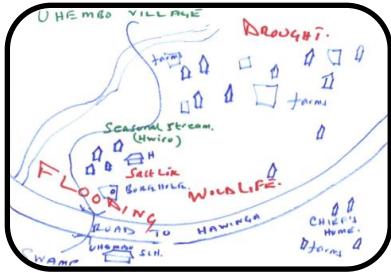 UHEMBO VILLAGE
DROUGHT.
farms
farms
Seasonal Stream.
(Hwiro)
H
Salt Lik
BOREHOLE
FLOODING
WILDLIFE.
ROAD TO HAWINGA
CHIEF'S
HOME.
farms
SWAMP
UHEMBO SCH.